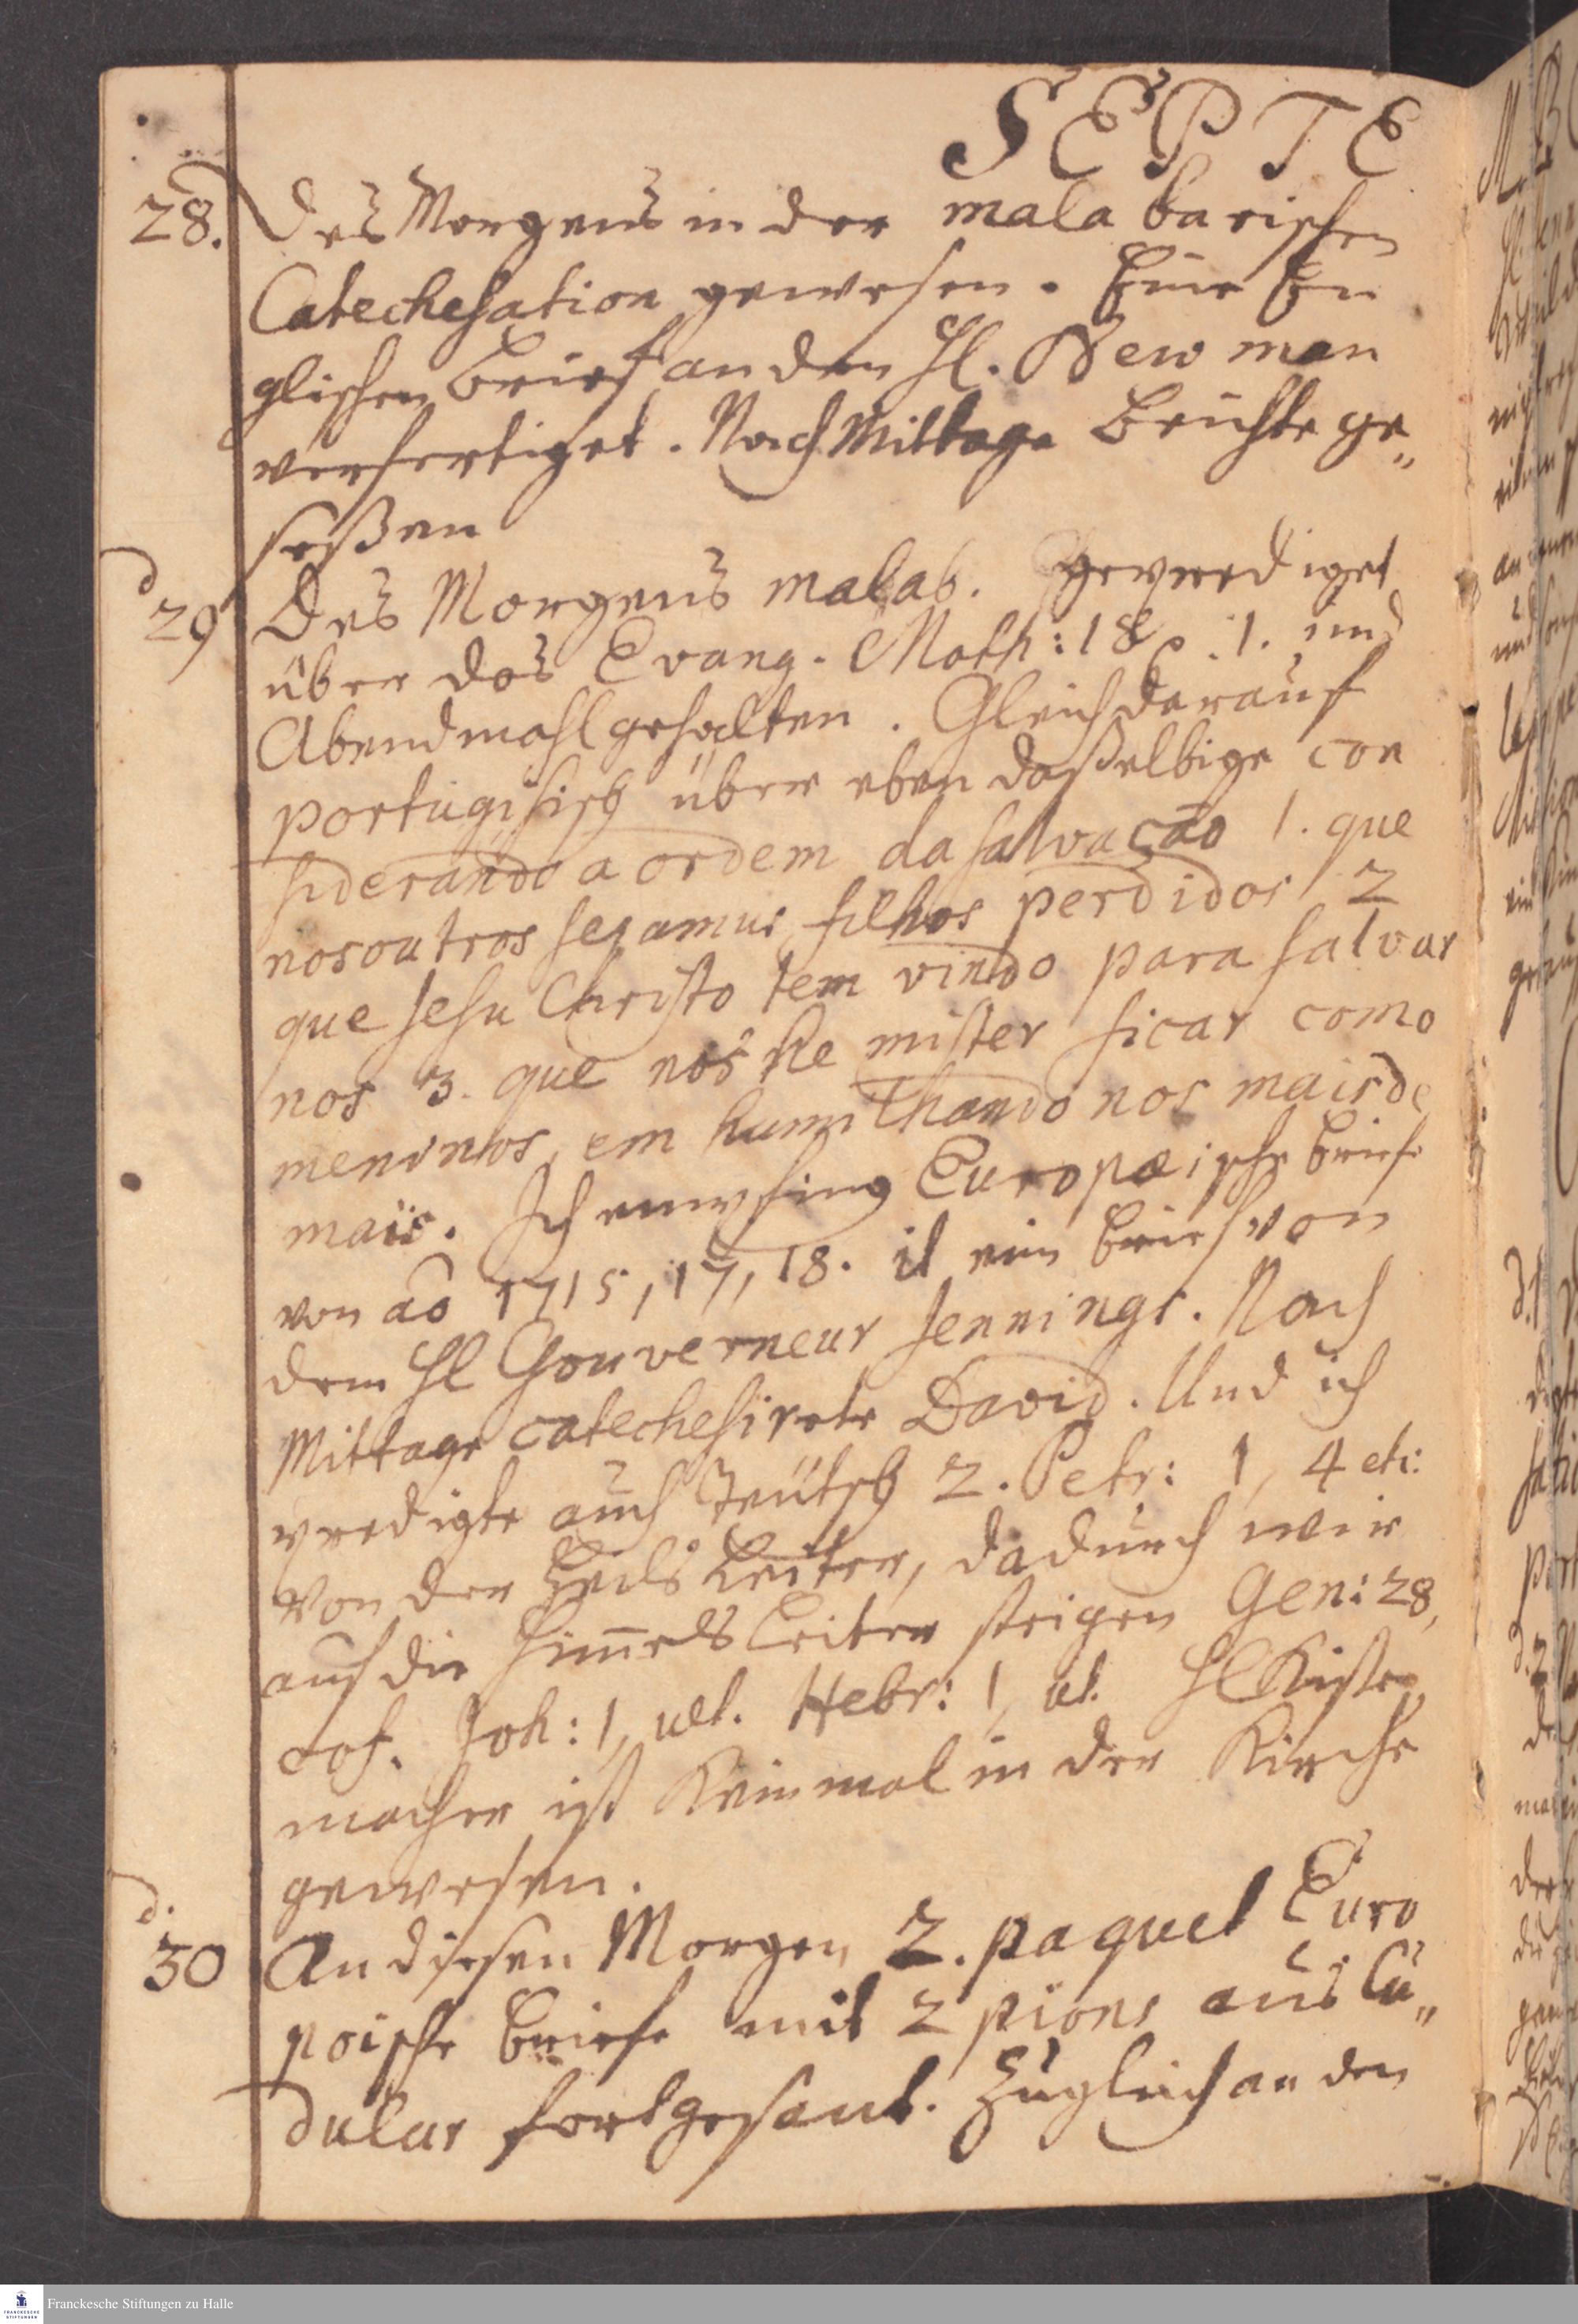 SEPTE
28. Des Morgens in der malabarischen
Catechesation gewesen. Eine En
glischen Brief an den H. Newman
verfertiget. Nach Mittage Beichte ge„
seßen
d 29 Des Morgens malab. geprediget
über das Evang. Math: 18, 1. und
Abendmahl gehalten. Gleich darauf
portugisisch über eben daßelbige con
siderando a ordem da salvação 1. que
nosoutros sejamus filhos perdidos 2
que Jesu Christo tem vindo para salvar
nos 3. que nos he mister ficar como
meninos, em humilhando nos mais de
mais. Ich empfing Europæische briefe
von ao 1715, 17, 18. it ein brief von
dem H Gouverneur Jennings. Nach
Mittage catechesirete David. Und ich
predigte auch Teutsch 2. Petr: 1, 4 etc:
von der Heils Leiter, dadurch wir
auf die Him̄els Leiter steigen Gen: 28,
cof. Joh: 1, ult. Hebr: 1, ul. H Kisten
macher ist keinmal in der Kirche
gewesen.
d. 30 An diesen Morgen 2. paquet Euro
poische briefe mit 2 pions aus Cu„
dulur fortgesant. Zugleich an den
Franckesche Stiftungen zu Halle